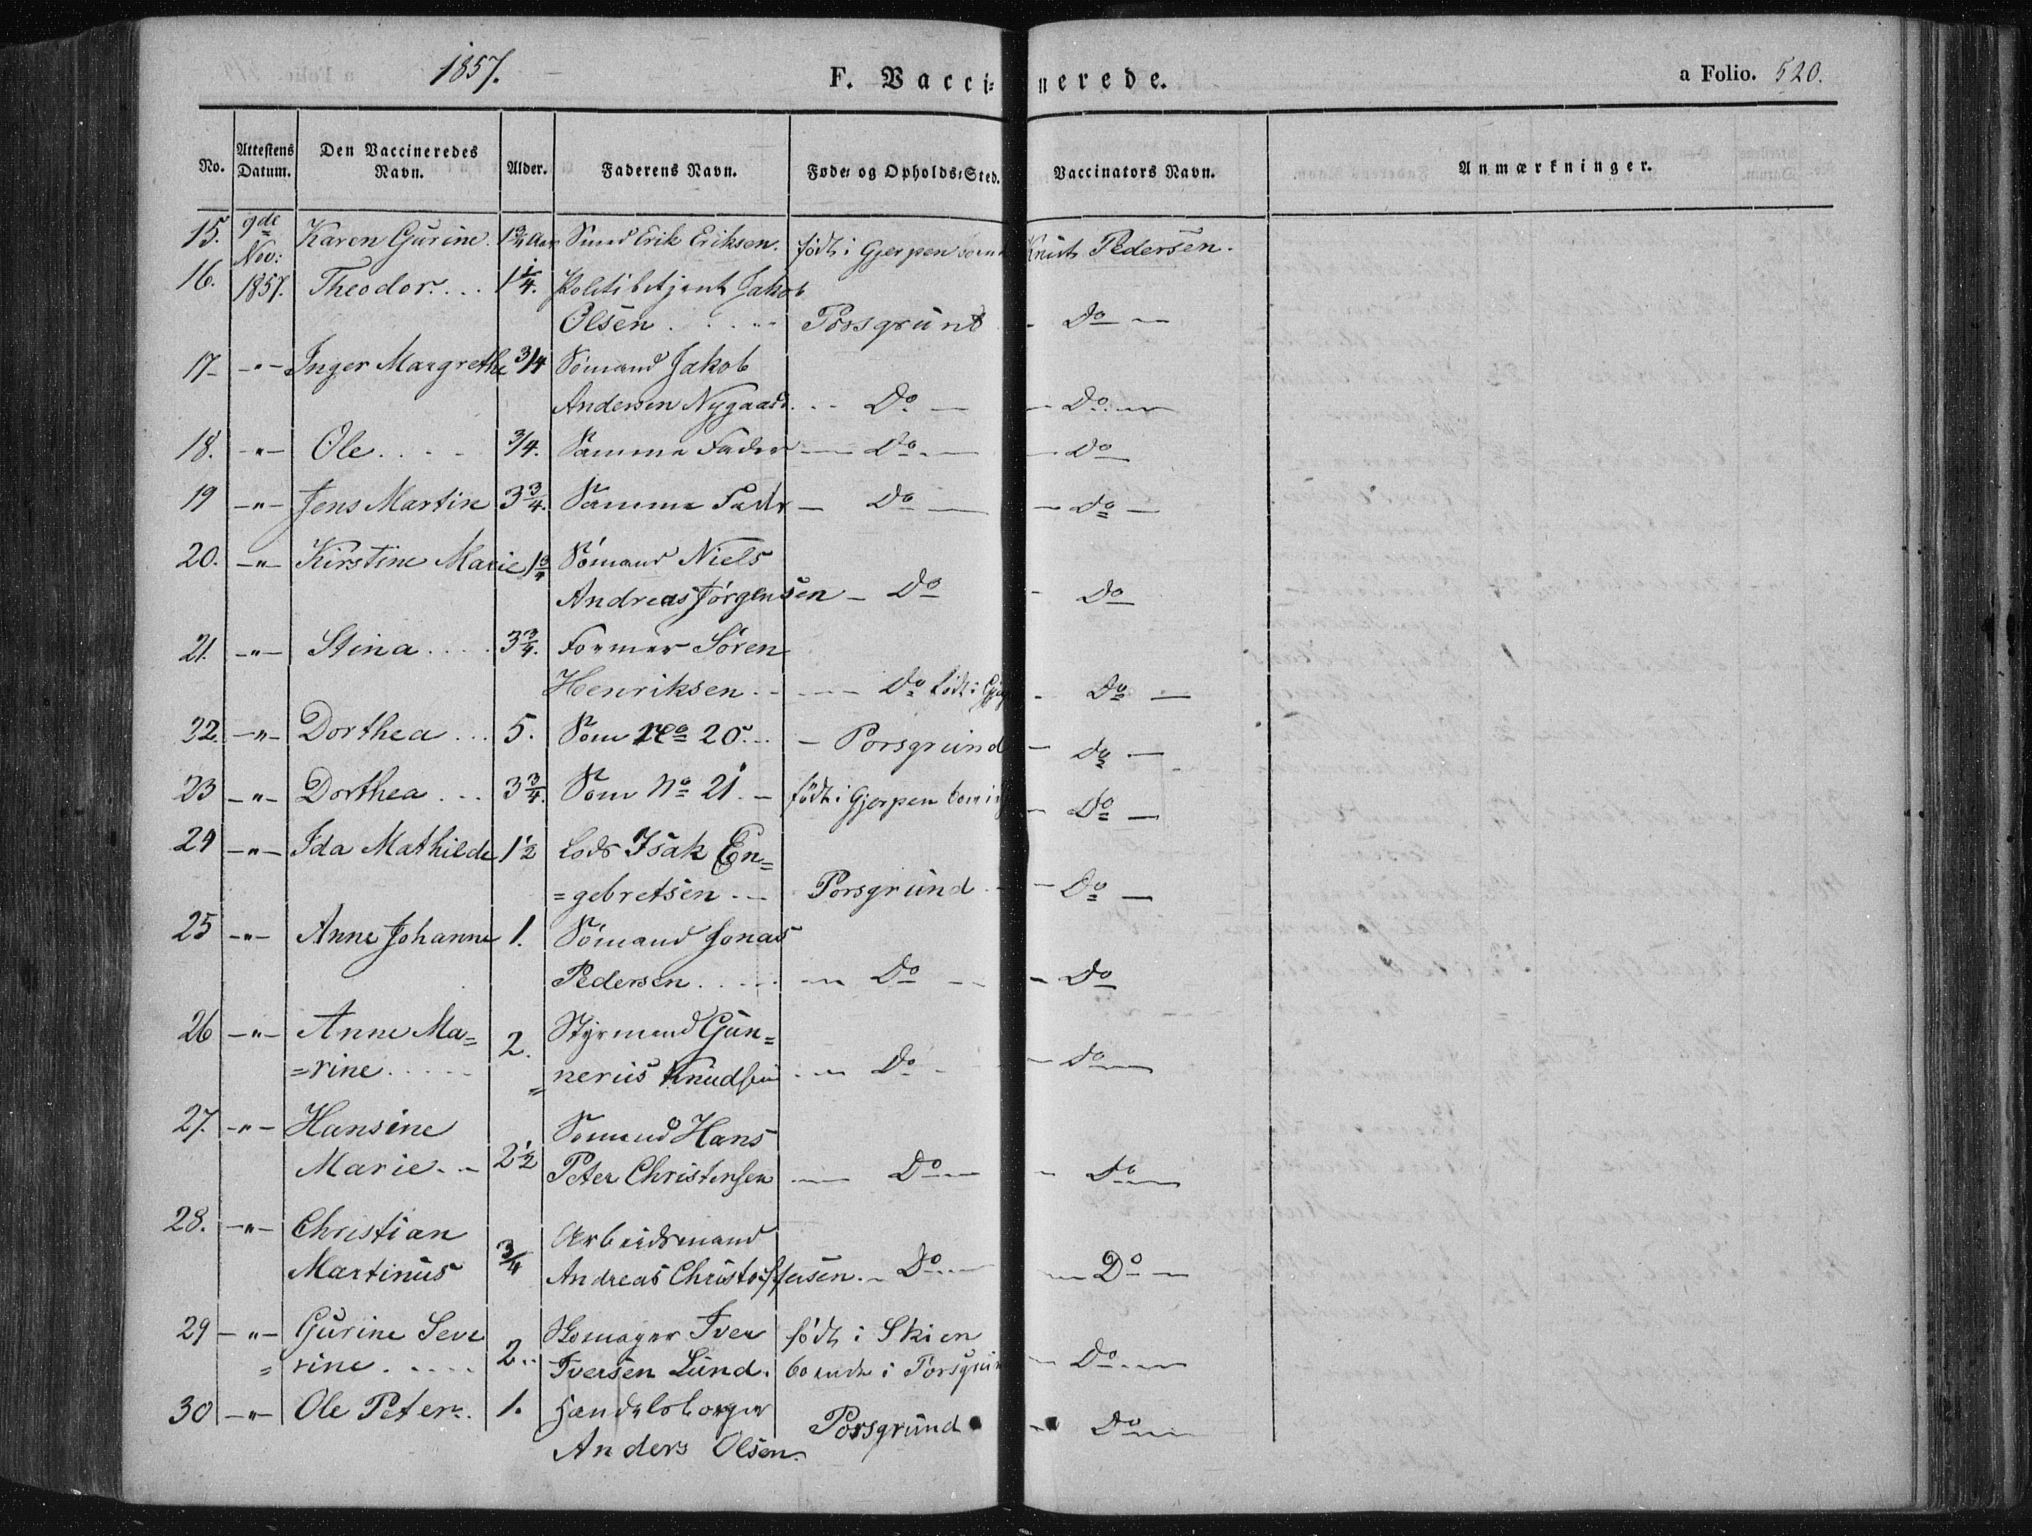 1857.
F. Vaccinerede.
a Folio. 520.
No. Attestens Datum. Den Vaccineredes Navn. Alder. Faderens Navn. Føde- og Opholds-Sted. Vaccinators Navn. Anmærkninger.
15. 9de Nov: Karen Gurine. 1 3/4 Aar Smed Erik Eriksen. født i Gjerpen Knut Pedersen.
16. 1857. Theodor... 1 1/4. Politibetjent Jakob
Olsen..... Porsgrund - Do -
17- -"- Inger Margrethe 3/4 Sömand Jakob
Andersen Nygaard... Do - - Do -
18. -"- Ole.... 3/4. Samme Fader - Do - - Do
19 -"- Jens Martin 3 3/4. Samme Fader - Do - - do -
20. -"- Kirstine Marie 1 3/4 Sömand Niels
Andreas Jörgensen - Do - Do
21. -"- Stina.... 3 3/4. Former Sören
Henriksen.. - Do født i - Do -
22. -"- Dorthea... 5. Som No 20... - Porsgrund - do -
23 -"- Dorthea... 3 3/4. Som No 21. - født i Gjerpen - Do -
24 -"- Ida Mathilde 1 1/2 Lods Isak En=
=gebretsen.. Porsgrund - - Do -
25 -"- Anne Johanne 1. Sömand Jonas
Pedersen..... - Do - - Do
26 -"- Anne Ma= 2. Styrmand Gun=
=rine..... =nerius Knudsen - Do - - do -
27. -"- Hansine Sömand Hans
Marie.. 2 1/2 Peter Christensen - Do - - do -
28. -"- Christian Arbeidsmand
Martinus 3/4 Andreas Christoffersen. - Do - - Do -
29 -"- Gurine Seve Skomager Iver født i Skien
=rine..... 2.. Iversen Lund. boende i Porsgrun - Do -
30 -"- Ole Peter. 1. Handelsborger
Anders Olsen. Porsgrund - Do -